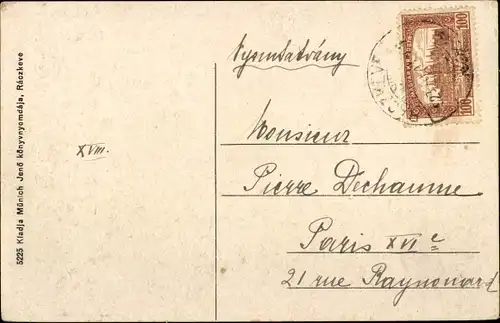 Nyomtatvány
100
100
RÁCZKEVE
Monsieur
Pierre Dechaume
Paris XVIe
21 rue Raynouard
XVIII.
5225 Kiadja Münich Jenő könyvnyomdája, Ráczkeve